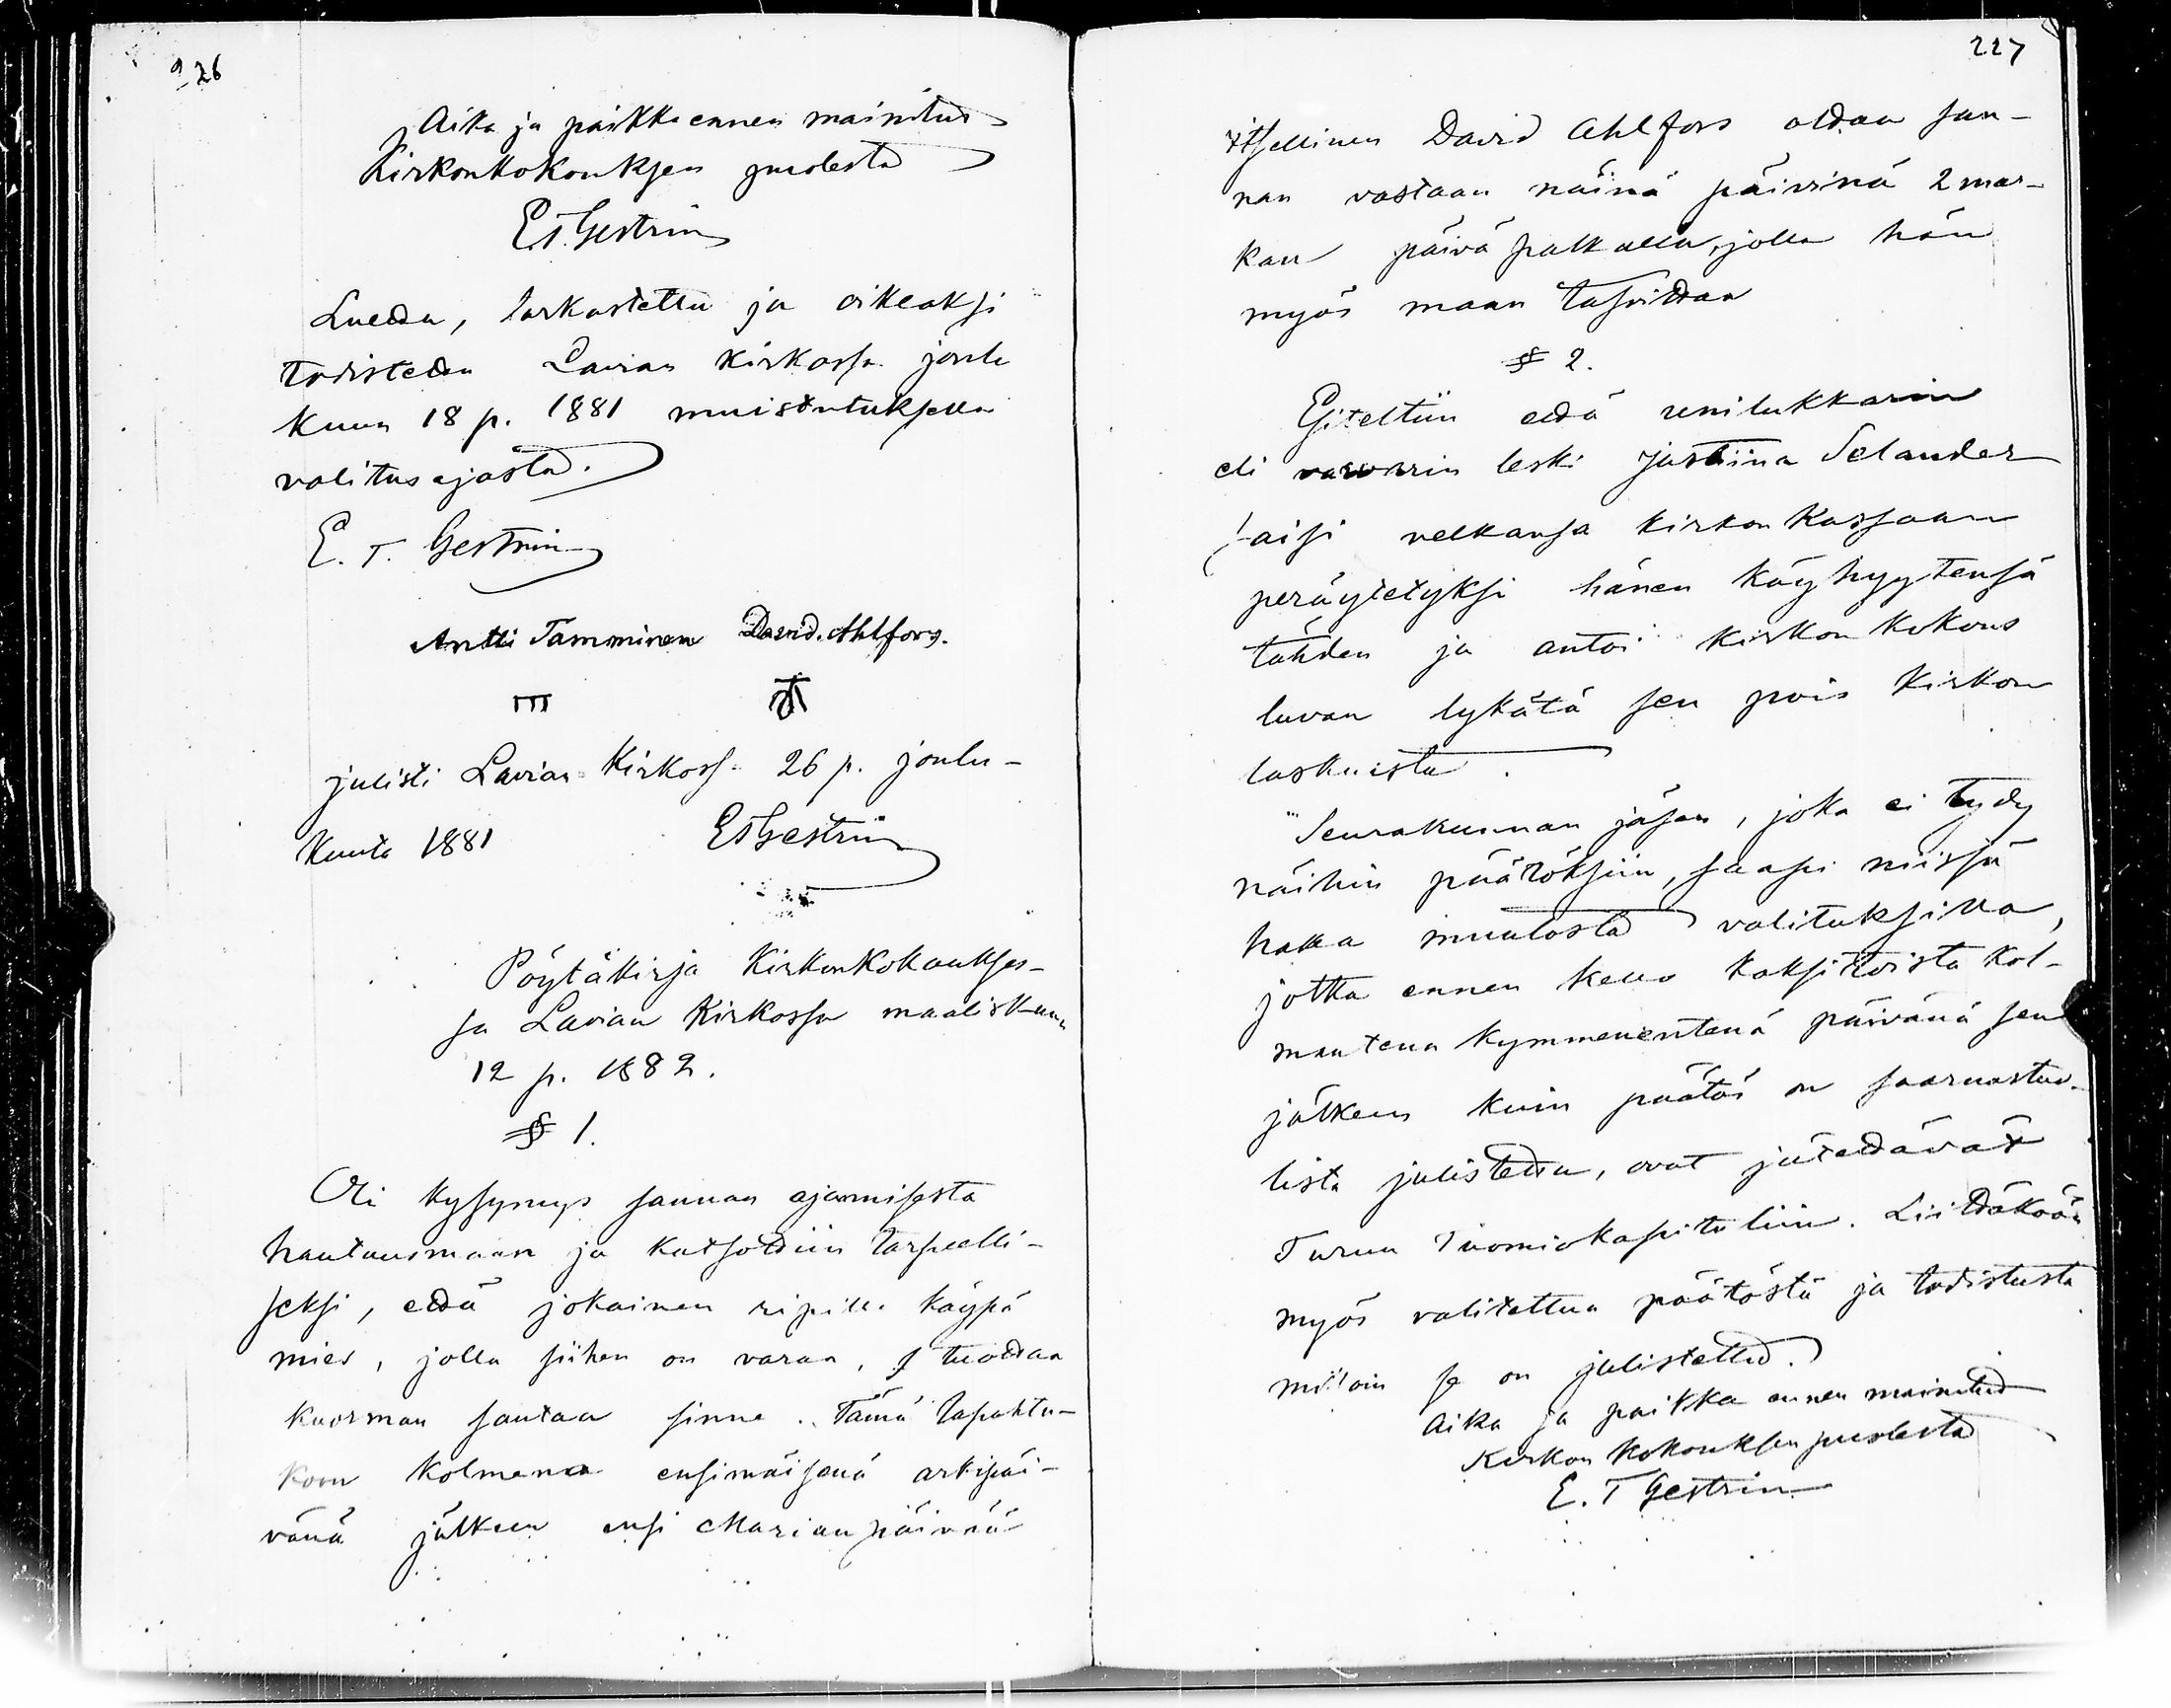 226
Aika ja paikka ennen mainitut
Kirkonkokouksen puolesta
E.T. Gestrin
Luettu, tarkastettu ja oikeaksi
todistettu Lavian kirkossa joulu
kuun 18 p. 1881 muistutuksella
valitusajasta.
E. T. Gestrin
Antti Tamminen David. Ahlfors.
julisti Lavian Kirkoss. 26 p. joulu-
kuuta 1881 E T Gestrin
Pöytäkirja Kirkonkokoukses-
sa Lavian Kirkossa maaliskuun
12 p. 1882.
§ 1.
Oli kysymys sannan ajamisesta
hautausmaan ja katsottiin tarpeelli-
seksi, että jokainen ripillä käypä
mies, jolla siihen on varaa, tuottaa
kuorman santaa sinne. Tämä tapahtu-
koon kolmena ensimäisenä arkipäi-
vänä jälkeen ensi Marianpäivää
227
itsellinen David Ahlfors ottaa san-
nan vastaan näinä päivinä 2 mar-
kan päivä palkalla, jolla hän
myös maan tasoittaa
§ 2.
Esiteltiin että unilukkarin
eli vaivarin leski Justiina Selander
saisi velkansa kirkon kassaan
peräytetyksi hänen köyhyytensä
tähden ja antoi kirkon kokous
luvan lykätä sen pois kirkon
laskuista.
Seurakunnan jäsen, joka ei tydy
näihin päätöksiin, saapi niissä
hakea muutosta valituksilla,
jotka ennen kello kaksitoista kol-
mantena kymmenentenä päivänä sen
jälkeen kuin päätös on saarnastuo-
lista julistettu, ovat jätettävät
Turun Tuomiokapituliin. Liittäköön
myös valitettua päätöstä ja todistusta
milloin se on julistettu.
Aika ja paikka ennen mainitut
Kirkon kokouksen puolesta
E. T Gestrin